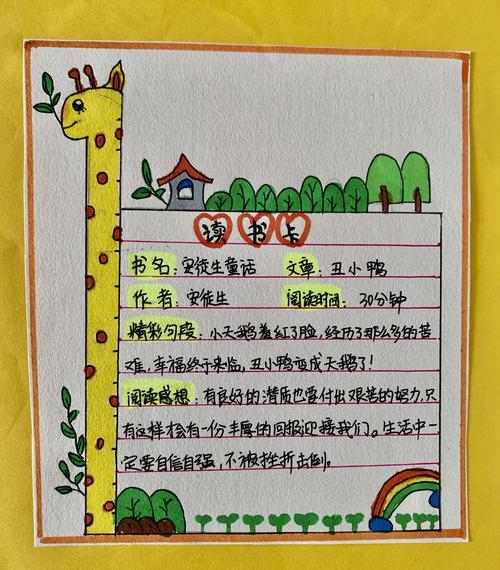 读书卡
书名：安徒生童话 文章：丑小鸭
作者：安徒生 阅读时间：30分钟
精彩句段：小天鹅羞红了脸，经历了那么多的苦
难，幸福终于来临，丑小鸭变成天鹅了！
阅读感想：有良好的潜质也要付出艰苦的努力，只
有这样才会有一份丰厚的回报迎接我们。生活中一
定要自信自强，不被挫折击倒。